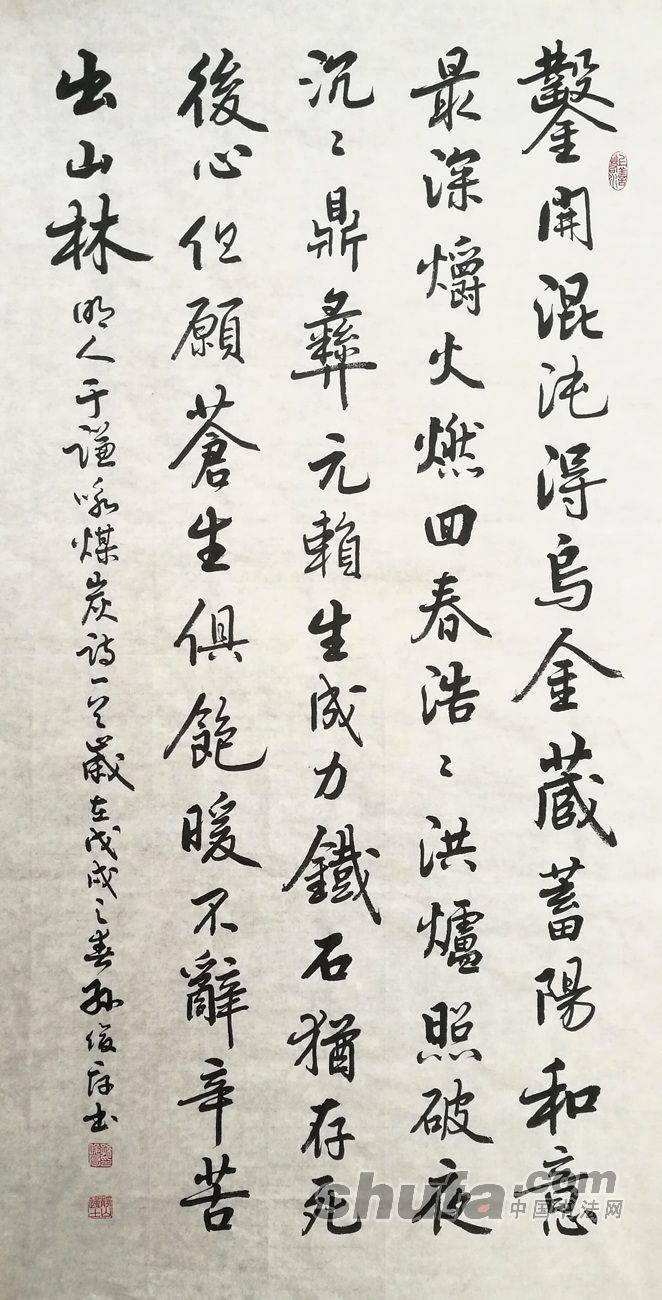 鑿開混沌得烏金藏蓄陽和意
最深爝火燃回春浩〻洪爐照破夜
沉〻鼎彝元賴生成力鐵石猶存死
後心但願蒼生俱飽暖不辭辛苦
出山林 明人于谦咏煤炭诗一首歲在戊戌之春孫俊书
shufa.com
中国书法网